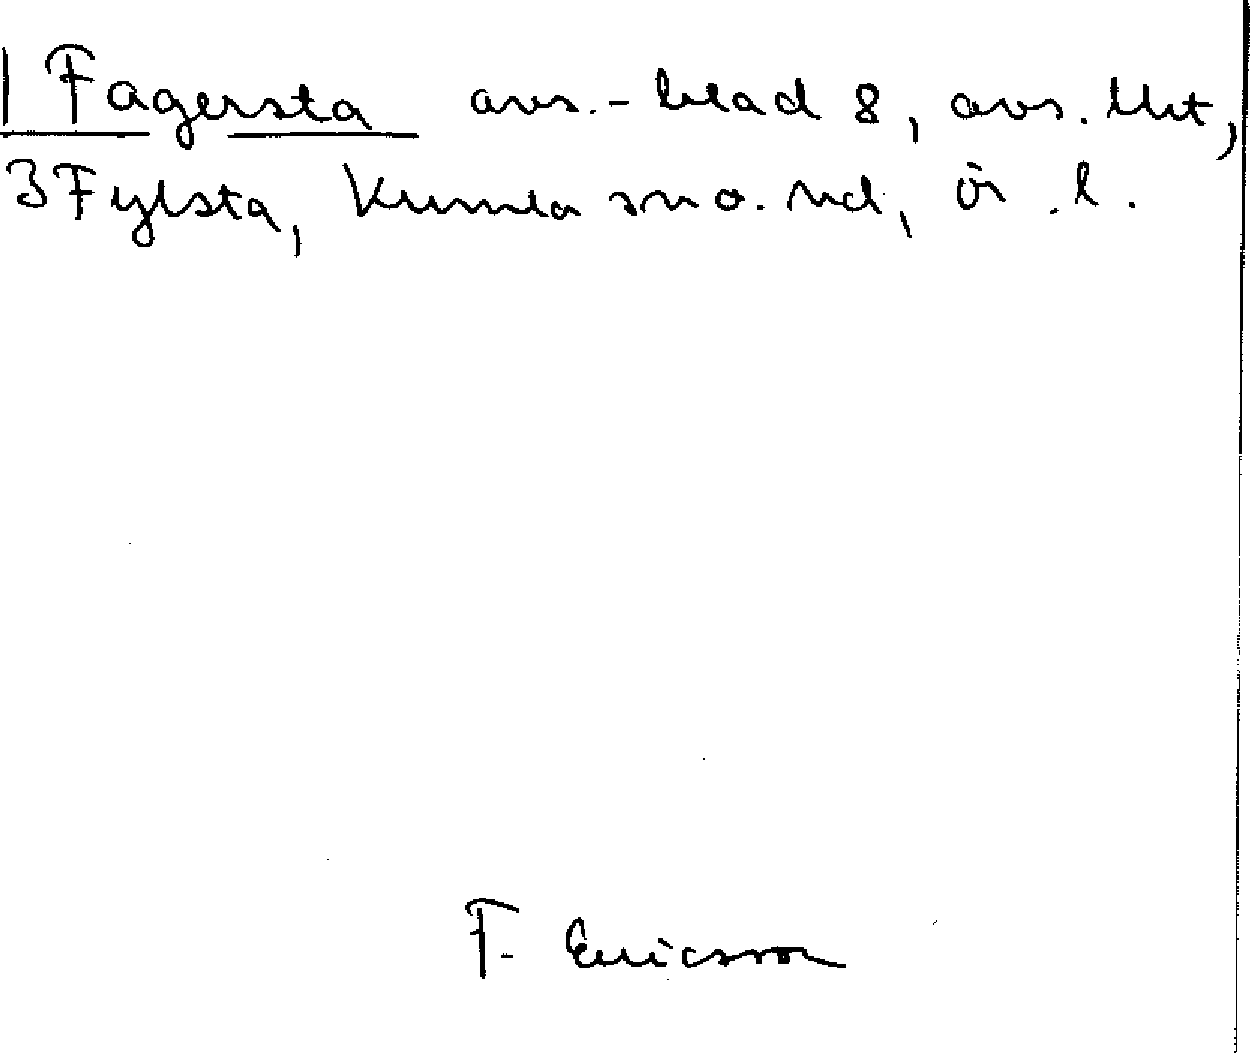 1 Fagersta avs.-blad 8, avs. Utt,
3 Fylsta, Kumla sn o. hd, ör. l.
F. Ericsson